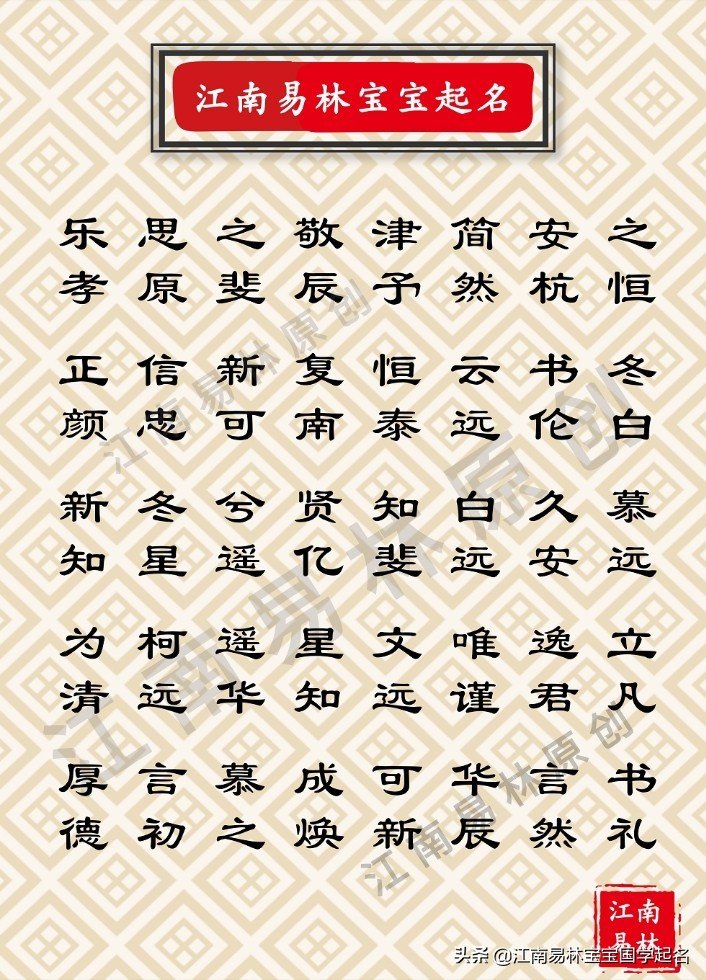 江南易林宝宝起名
乐 思 之 敬 津 简 安 之
孝 原 斐 辰 予 然 杭 恒
正 信 新 复 恒 云 书 冬
颜 忠 可 南 泰 远 伦 白
新 冬 兮 贤 知 白 久 慕
知 星 遥 亿 斐 远 安 远
为 柯 遥 星 文 唯 逸 立
清 远 华 知 远 谨 君 凡
厚 言 慕 成 可 华 言 书
德 初 之 焕 新 辰 然 礼
江南易林原创
江南易林原创
江南易林原创
江南
易林
头条 @江南易林宝宝国学起名